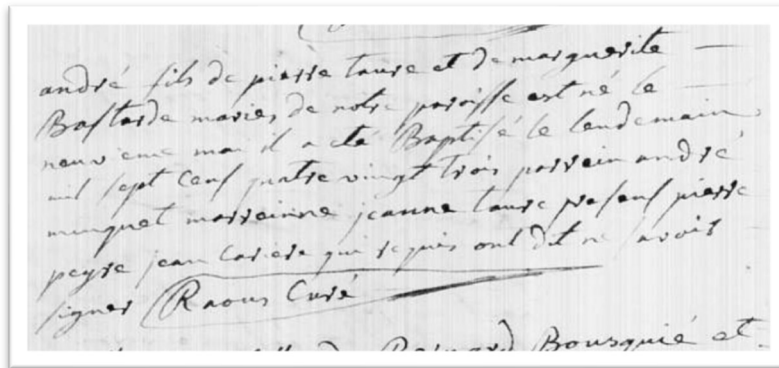 andré fils de pierre taure et de marguerite
Bastarde maries de notre paroisse est né le
neuvieme mai il a eté Baptisé le lendemain
mil sept cens quatre vingt trois parrein andré
minguet marreinne jeanne taure presens pierre
peyre jean cariere qui requis ont dit ne savoir
signer Raous Curé
Bousquié et